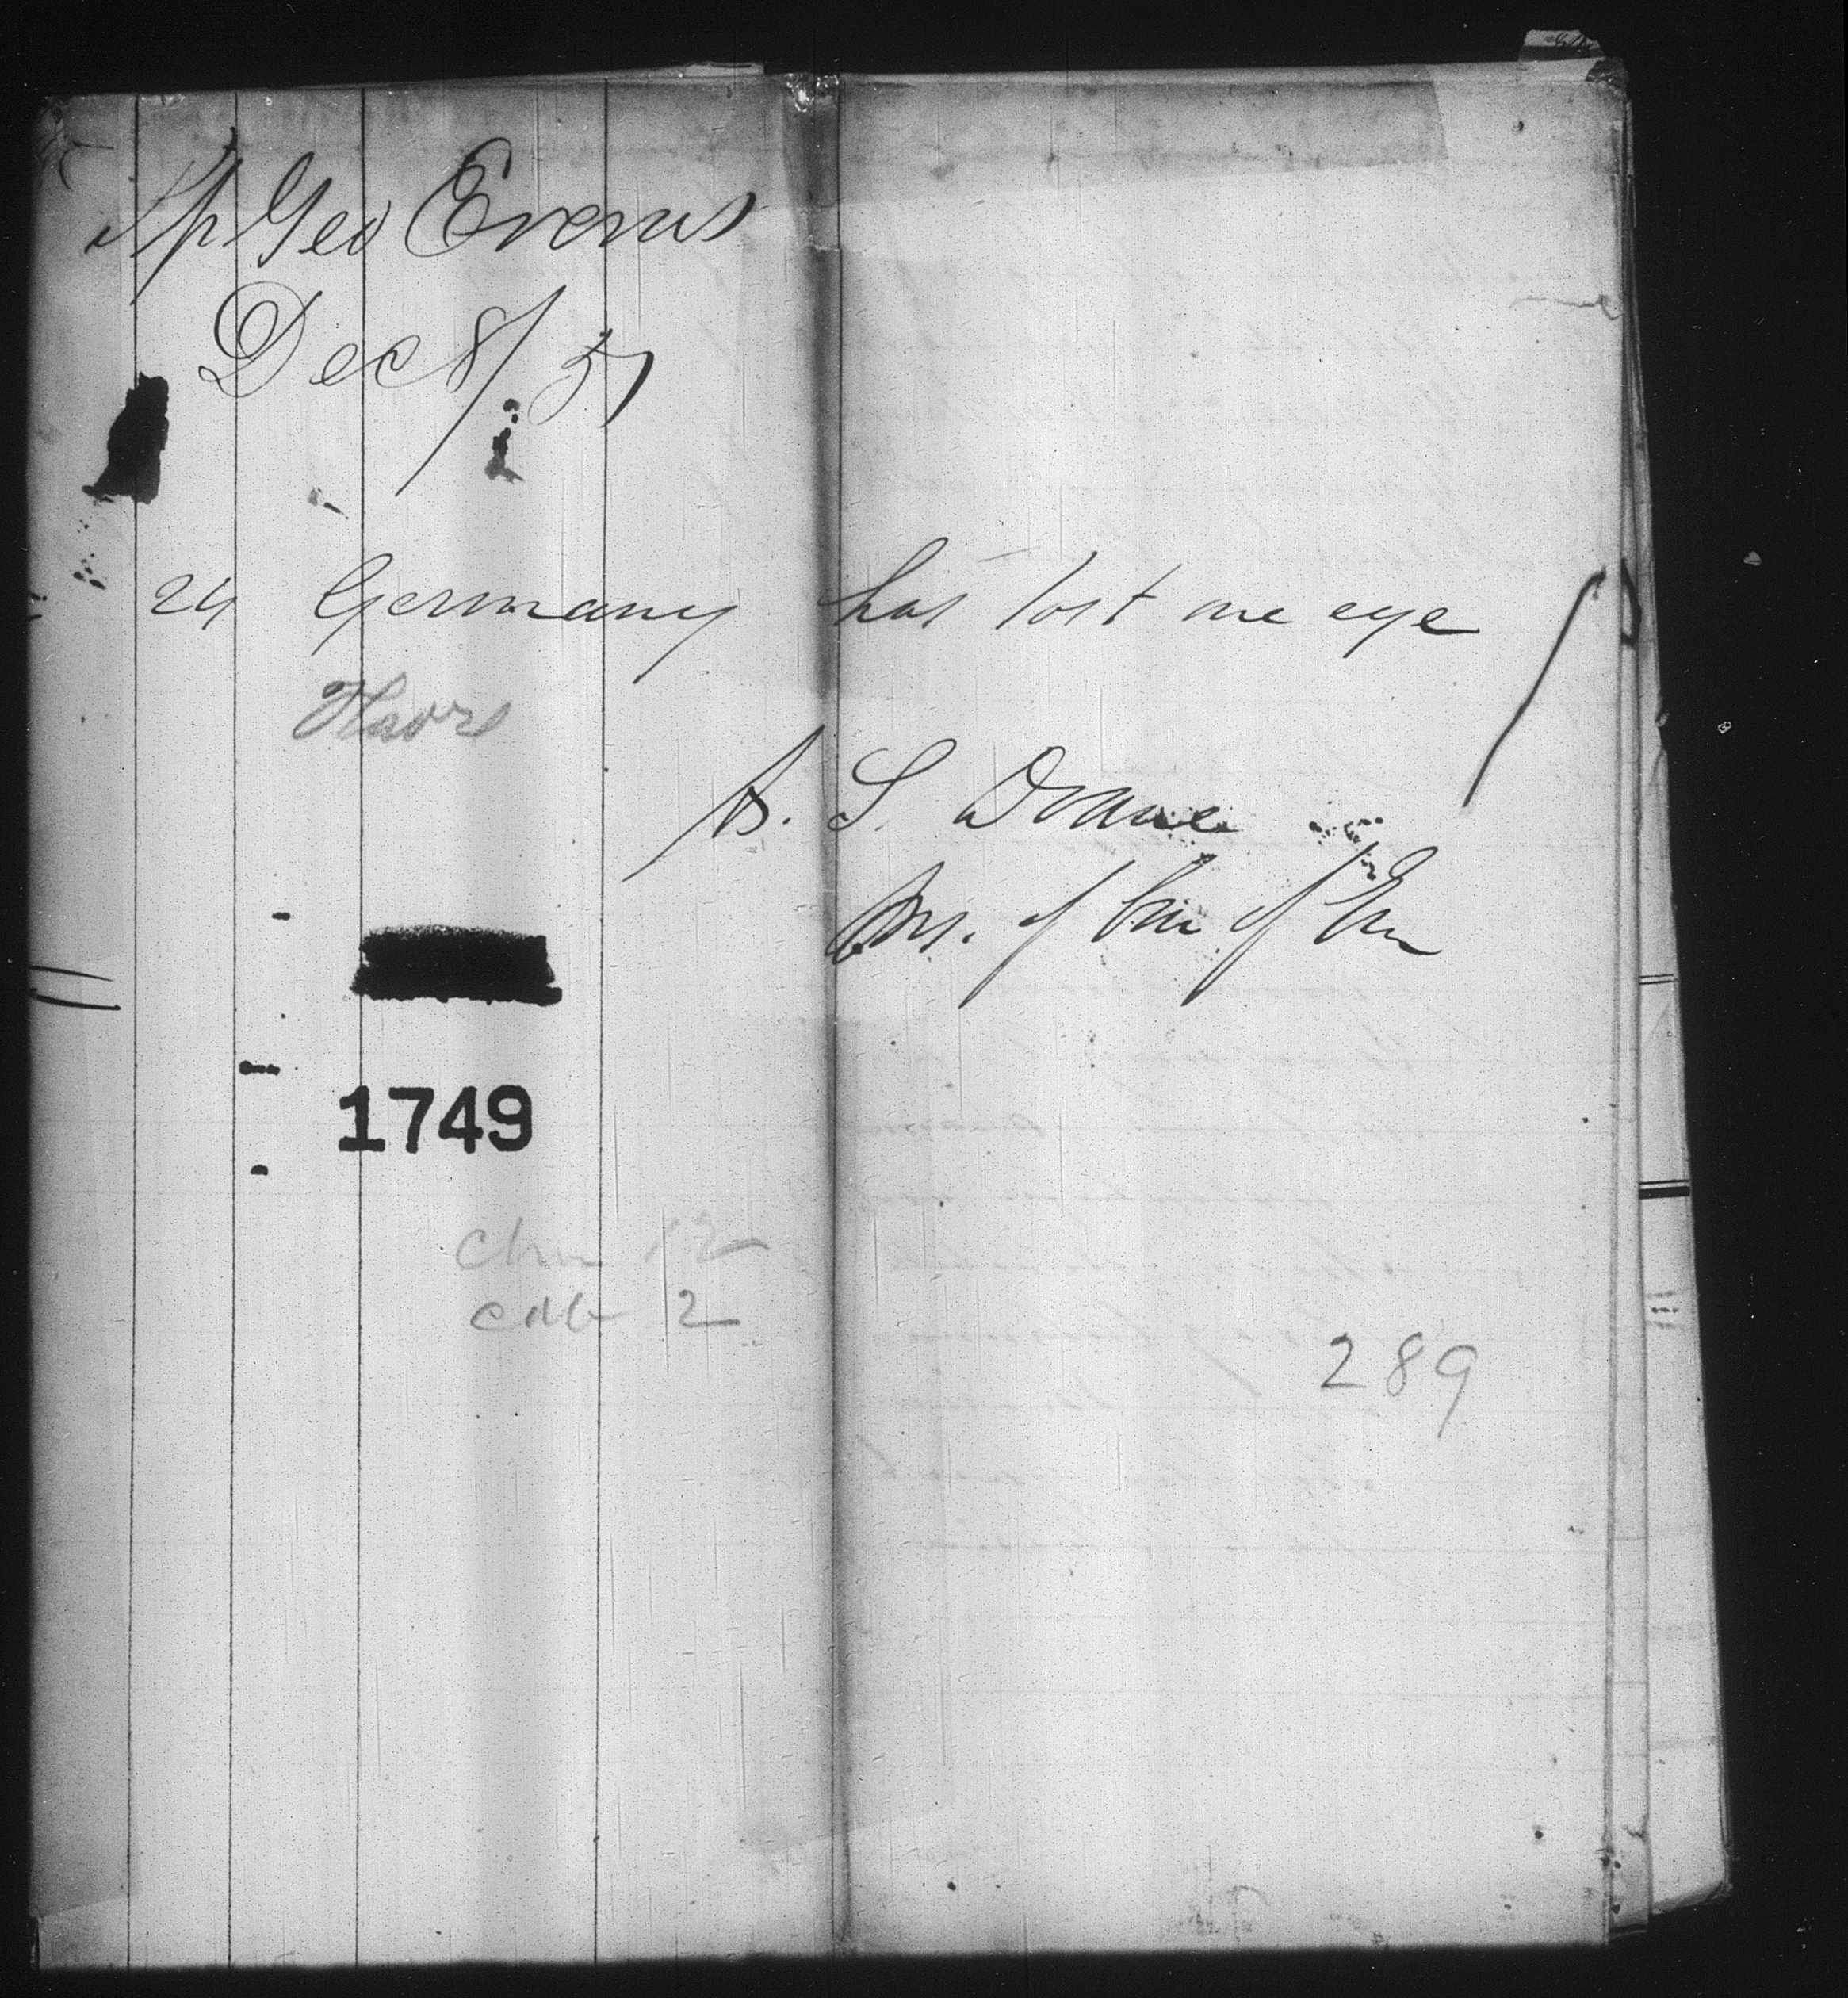 Sp Geo Evans
Dec 8/57
24 Germany has lost one eye
Havre
A. S. Doane
of Com of Em
1749
Chn 12
289